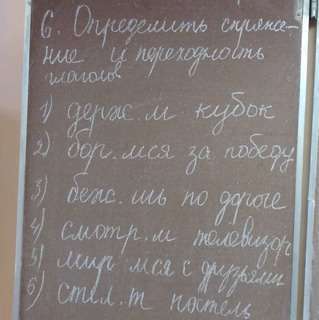 6. Определить спряже-
ние и переходность
глаголов
1) держ.м кубок
2) бор.мся за победу
3) беж.шь по дороге
4) смотр.м телевизор
5) мир.мся с друзьями
6) стел.т постель